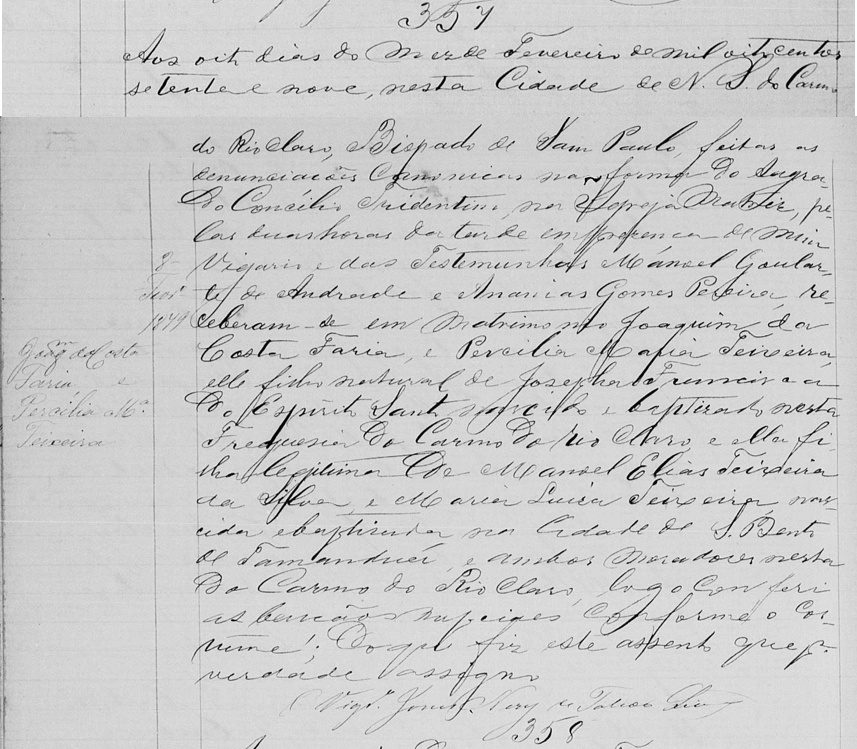 357
Aos oito dias do Mez de Fevereiro de mil oitocentos
setenta e nove, nesta Cidade de N. S. do Carmo
do Rio Claro, Bispado de Sam Paulo, feitas as
denunciações Canonicas na forma do Sagra-
do Concilio Tridentino, na Igreja Matriz, pe-
las duas horas da tarde em presença de mim
Vigario e das Testemunhas Mánoel Goular-
te de Andrade e Ananias Gomes Pereira, re-
ceberam-se em Matrimonio Joaquim da
Costa Faria, e Percilia Maria Teixeira,
elle filho natural de Josepha Francisca
do Espirito Santo nascido e baptizado nesta
Freguesia do Carmo do rio Claro e ella fi-
lha legitima de Manoel Elias Teixeira
da Silva, e Maria Luiza Teixeira, nas-
cida e baptizada na Cidade de S. Bento
de Tamanduá, e ambos moradores nesta
do Carmo do Rio Claro, logo Conferi
as bençãos nupciaes Conforme o Cos-
tume; Do que fiz este assento que p.ª
verdade assigno
Vigr.º
8
Fevr.º
1879
Joaq.m da Costa
Faria e
Percilia M.ª
Teixeira
358